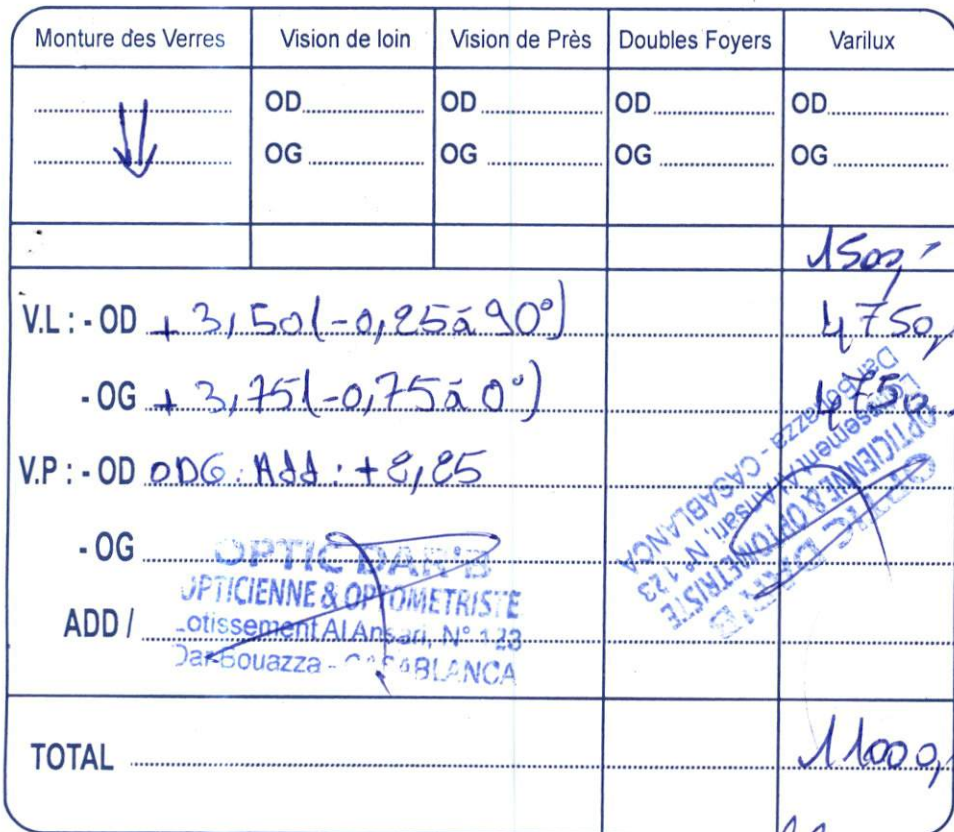 Monture des Verres Vision de loin Vision de Près Doubles Foyers Varilux
OD OD OD OD
OG OG OG OG
1500,-
V.L : - OD + 3,50 (-0,25 à 90°) 4750,
- OG + 3,75 (-0,75 à 0°) 4750,
V.P : - OD ODG : Add : +2,25
- OG
OPTIC DAR'B
OPTICIENNE & OPTOMETRISTE
ADD /
Lotissement Al Ansari, N° 123
Dar Bouazza - CASABLANCA
OPTIC DAR'B
OPTICIENNE & OPTOMETRISTE
Lotissement Al Ansari, N° 123
Dar Bouazza - CASABLANCA
TOTAL 11000,